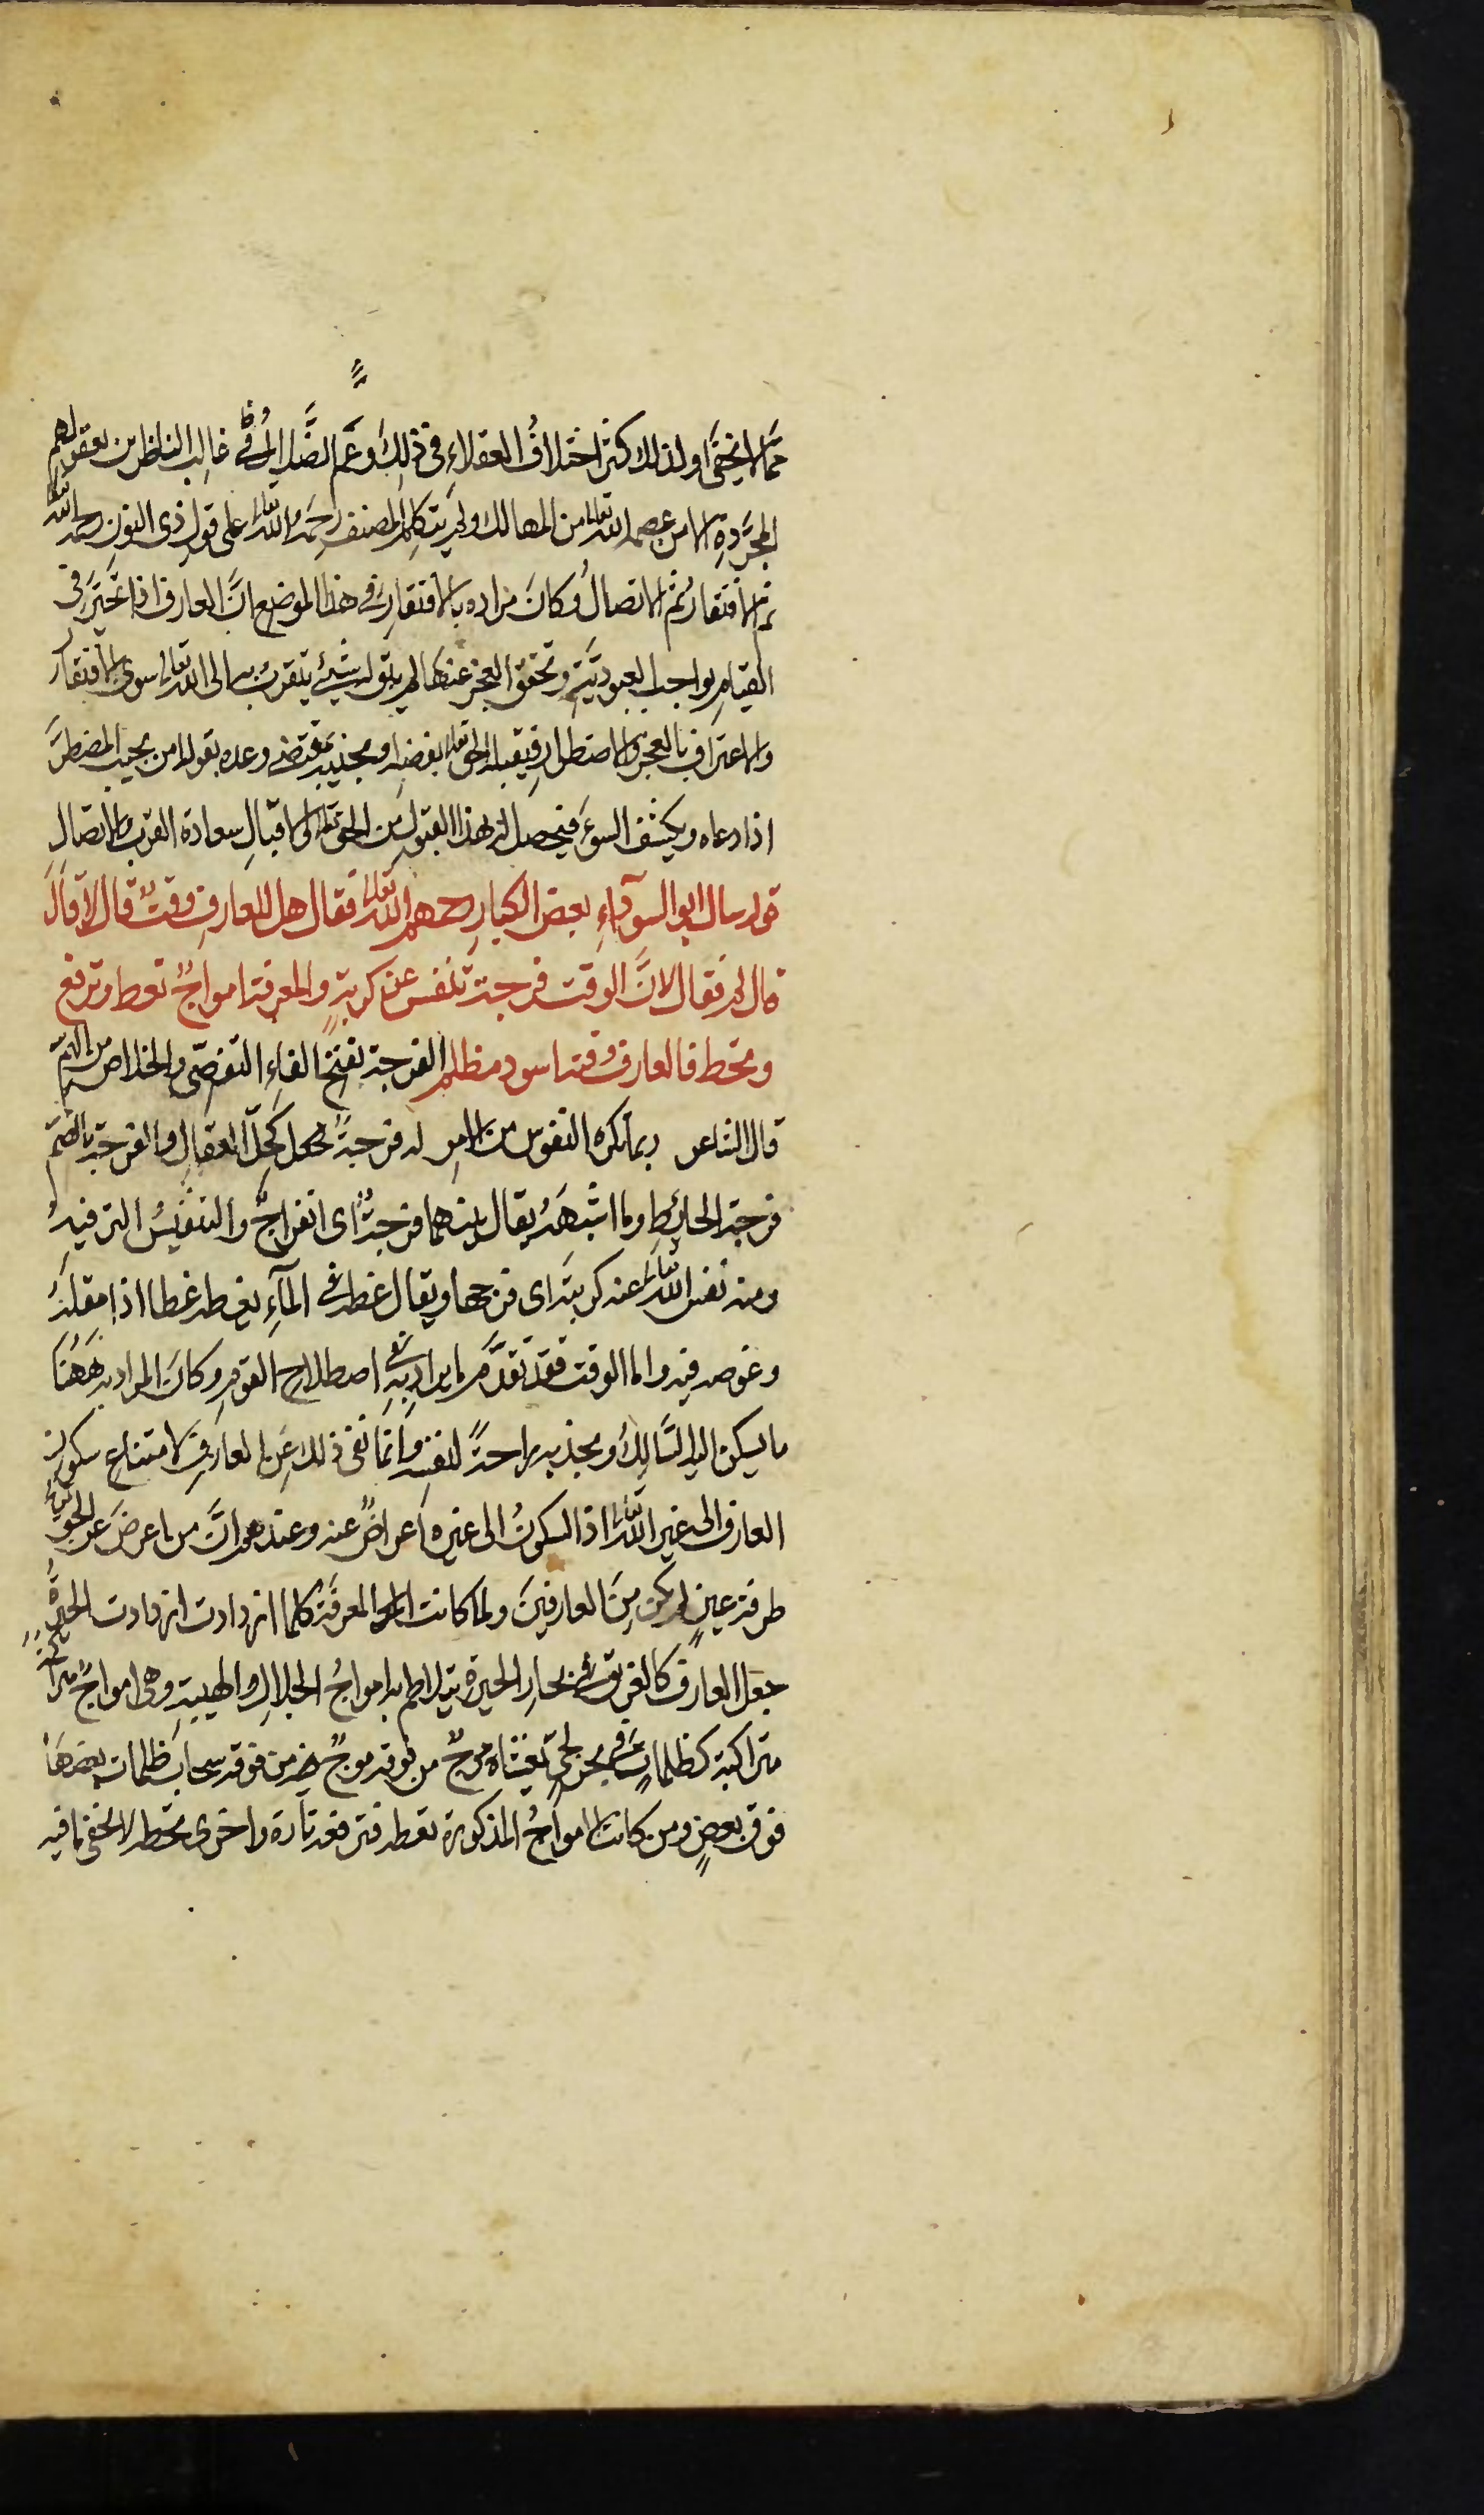 مما لا يخفى ولذلك كثر اختلافُ العقلاء في ذلك وعَم الضَّلال في غالب الناظرين بعقولهم
المجرَّدةِ الا من عصمه الله تعالى من المهالك ولم يتكلم المصنف رحمَه الله تعالى على قول ذي النون رحمه الله تعالى
ثم الافتقارُ ثم الاتصالُ وكانَ مراده بالافتقارِ في هذا الموضع انَّ العارف اذا تحيَّر في
القيامِ بواجب العبوديَّةِ وتحقق العجز عنها لم يبق له شيئ يتقربُ به الى الله تعالى سوى الافتقار
والاعتراف بالعجز والاضطرارِ فيقبله الحق تعالى بفضله ويجذبه بمقتضى وعده بقوله امن يجيب المضطرَّ
اذا دعاه ويكشف السوءَ فيحصل له بهذا القبول من الحق تعالى والاقبالِ سعادة القرب والاتصالِ
قوله سال ابو السوداءِ بعض الكبارِ رحمهم الله تعالى فقال هل للعارف وقتٌ قال لا قالَ
قال لم فقال لانَّ الوقت فرجة تنفس عن كربةٍ والمعرفة امواجٌ تغط وترفع
وتحط فالعارف وقته اسود مظلم الفرجة بفتح الفاءِ التفصّى والخلاص من الهمّ
قال الشاعر ربما تكره النفوس من الامرِ له فرجةً كحل العقالِ والفرجة بالضمّ
فرجة الحائطِ وما اشبهَهُ يقال بينهما فرجةٌ اى انفراجٌ والتنفيسُ الترفيهُ
ومنه نفس الله تعالى عنه كربتَه اى فرجها ويقال غطه في المآءِ يغطه غطا اذا مقلهُ
وغوصه فيه واما الوقت فقد تقدَّم ما يراد به في اصطلاح القومِ وكانَ المراد به هَهُنَا
ما يسكن اليه السَّالِكُ ويجذ به راحةً لنفسه وانما نفى ذلك عَنِ العارفِ لامتناع سكون
العارف الى غير الله تعالى اذ السكونُ الى غيره اعراضٌ عنه وعندهم انَّ من اعرضَ عن الحق تعالى
طرفة عينٍ لم يكن مِنَ العارفينَ ولما كانت المعرفَة كلما ازدادت ازدادت الحيرةُ
جعل العارفَ كالغريق في بحارِ الحيرة يتلاطم به امواجُ الجلال والهيبةِ وهى امواجٌ
متراكبة كظلماتٍ في بحر لجيّ يغشاه موجٌ من فوقه موجٌ من فوقه سحاب ظلمات بعضهَا
فوق بعضٍ ومن كانت الامواجُ المذكورة تغطه فترفعه تارة واخرى تحطه لا يخفى ما فيه